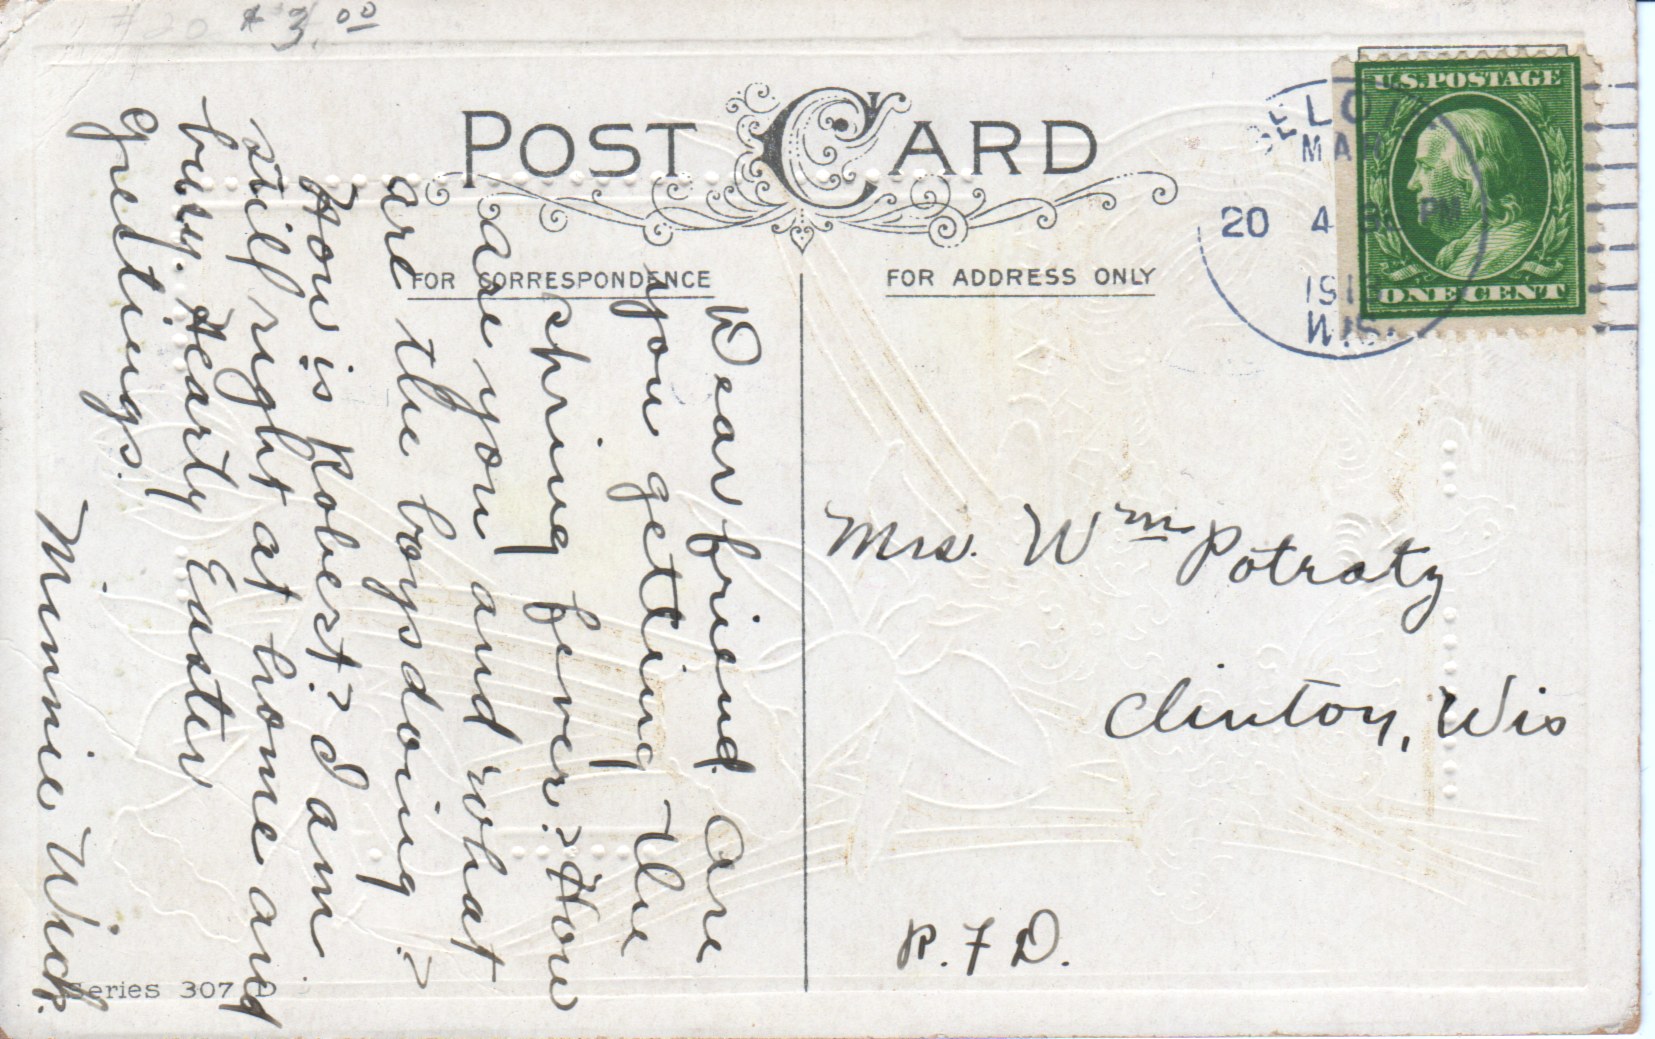 $ 3.00
POST CARD
FOR CORRESPONDENCE
FOR ADDRESS ONLY
U.S. POSTAGE
ONE CENT
BELOIT
MAR
20 4 30 PM
191
WIS.
Dear friend. Are
you getting the
spring fever? How
are you and what
are the boys doing?
How is Robert? I am
still right at home and
busy. Hearty Easter
greetings.
Minnie Wick.
Mrs. Wm Potratz
Clinton, Wis
R. F. D.
Series 307 D